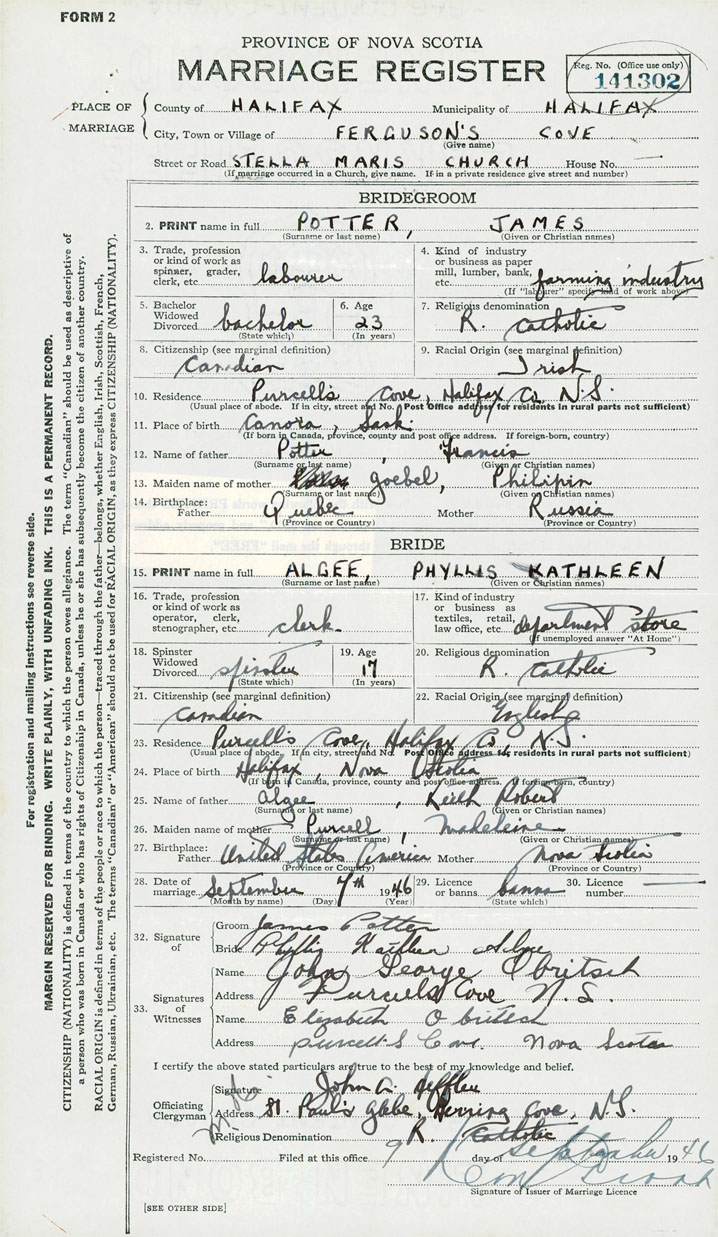 FORM 2
PROVINCE OF NOVA SCOTIA
MARRIAGE REGISTER
Reg. No. (Office use only)
141302
PLACE OF MARRIAGE
County of HALIFAX Municipality of HALIFAX
City, Town or Village of FERGUSON'S COVE
(Give name)
Street or Road STELLA MARIS CHURCH House No. —
(If marriage occurred in a Church, give name. If in a private residence give street and number)
BRIDEGROOM
2. PRINT name in full POTTER, JAMES
(Surname or last name) (Given or Christian names)
3. Trade, profession or kind of work as spinner, grader, clerk, etc. labourer
4. Kind of industry or business as paper mill, lumber, bank, etc. farming industry
(If "labourer" specify kind of work above)
5. Bachelor Widowed Divorced bachelor
(State which)
6. Age 23
(In years)
7. Religious denomination R. Catholic
8. Citizenship (see marginal definition) Canadian
9. Racial Origin (see marginal definition) Irish
10. Residence Purcell's Cove, Halifax Co. N.S.
(Usual place of abode. If in city, street and No. Post Office address for residents in rural parts not sufficient)
11. Place of birth Canora, Sask.
(If born in Canada, province, county and post office address. If foreign-born, country)
12. Name of father Potter, Francis
(Surname or last name) (Given or Christian names)
13. Maiden name of mother Goebel, Philipin
(Surname or last name) (Given or Christian names)
14. Birthplace: Father Quebec Mother Russia
(Province or Country) (Province or Country)
BRIDE
15. PRINT name in full ALGEE, PHYLLIS KATHLEEN
(Surname or last name) (Given or Christian names)
16. Trade, profession or kind of work as operator, clerk, stenographer, etc. clerk
17. Kind of industry or business as textiles, retail, law office, etc. department store
(If unemployed answer "At Home")
18. Spinster Widowed Divorced spinster
(State which)
19. Age 17
(In years)
20. Religious denomination R. Catholic
21. Citizenship (see marginal definition) Canadian
22. Racial Origin (see marginal definition) English
23. Residence Purcell's Cove, Halifax Co., N.S.
(Usual place of abode. If in city, street and No. Post Office address for residents in rural parts not sufficient)
24. Place of birth Halifax, Nova Scotia
(If born in Canada, province, county and post office address. If foreign-born, country)
25. Name of father Algee, Keith Robert
(Surname or last name) (Given or Christian names)
26. Maiden name of mother Purcell, Madeleine
(Surname or last name) (Given or Christian names)
27. Birthplace: Father United States America Mother Nova Scotia
(Province or Country) (Province or Country)
28. Date of marriage September 7th 1946
(Month by name) (Day) (Year)
29. Licence or banns banns
(State which)
30. Licence number —
32. Signature of
Groom James Potter
Bride Phyllis Kathleen Algee
33. Signatures of Witnesses
Name John George Obritsch
Address Purcells Cove N.S.
Name Elizabeth Obritsch
Address Purcell's Cove. Nova Scotia
I certify the above stated particulars are true to the best of my knowledge and belief.
Officiating Clergyman
Signature John A.
Address St. Paul's Glebe, Herring Cove, N.S.
Religious Denomination R. Catholic
Registered No. Filed at this office 9 day of September 1946
Signature of Issuer of Marriage Licence
[SEE OTHER SIDE]
For registration and mailing instructions see reverse side.
MARGIN RESERVED FOR BINDING. WRITE PLAINLY, WITH UNFADING INK. THIS IS A PERMANENT RECORD.
CITIZENSHIP (NATIONALITY) is defined in terms of the country to which the person owes allegiance. The term "Canadian" should be used as descriptive of
a person who was born in Canada or who has rights of Citizenship in Canada, unless he or she has subsequently become the citizen of another country.
RACIAL ORIGIN is defined in terms of the people or race to which the person—traced through the father—belongs, whether English, Irish, Scottish, French,
German, Russian, Ukrainian, etc. The terms "Canadian" or "American" should not be used for RACIAL ORIGIN, as they express CITIZENSHIP (NATIONALITY).